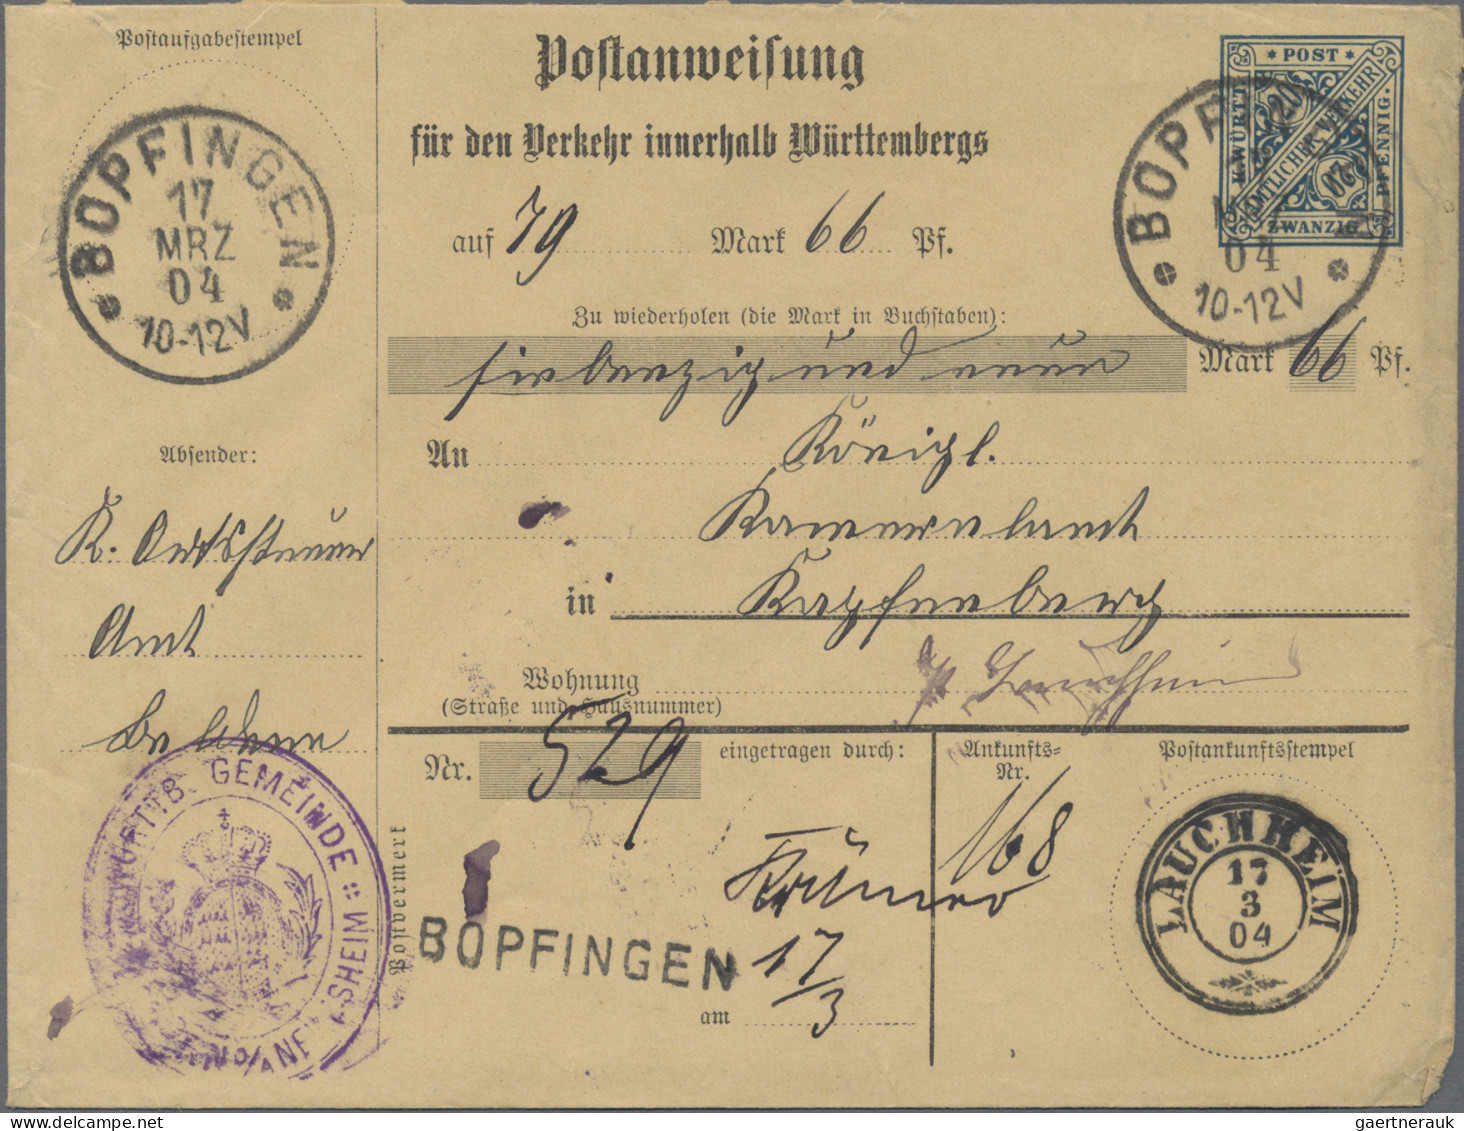 Postaufgabestempel
BOPFINGEN
17
MRZ
04
10-12V
Postanweisung
für den Verkehr innerhalb Württembergs
auf 79 Mark 66 Pf.
Zu wiederholen (die Mark in Buchstaben):
siebenzig und neun Mark 66 Pf.
* POST *
K.WÜRTT.
AMTLICHER VERKEHR
PFENNIG.
ZWANZIG
20
20
BOPF
04
10-12V
Absender:
K. Ortssteuer
Amt
An Königl.
Kameralamt
in Kapfenburg
Wohnung
(Straße und Hausnummer)
p. Lauchheim
WÜRTTB. GEMEINDE
SHEIM
Nr. 529 eingetragen durch:
Postvermerk
BOPFINGEN
17/3
am
Ankunfts-
Nr.
168
Postankunftsstempel
LAUCHHEIM
17
3
04
gaertnerauk